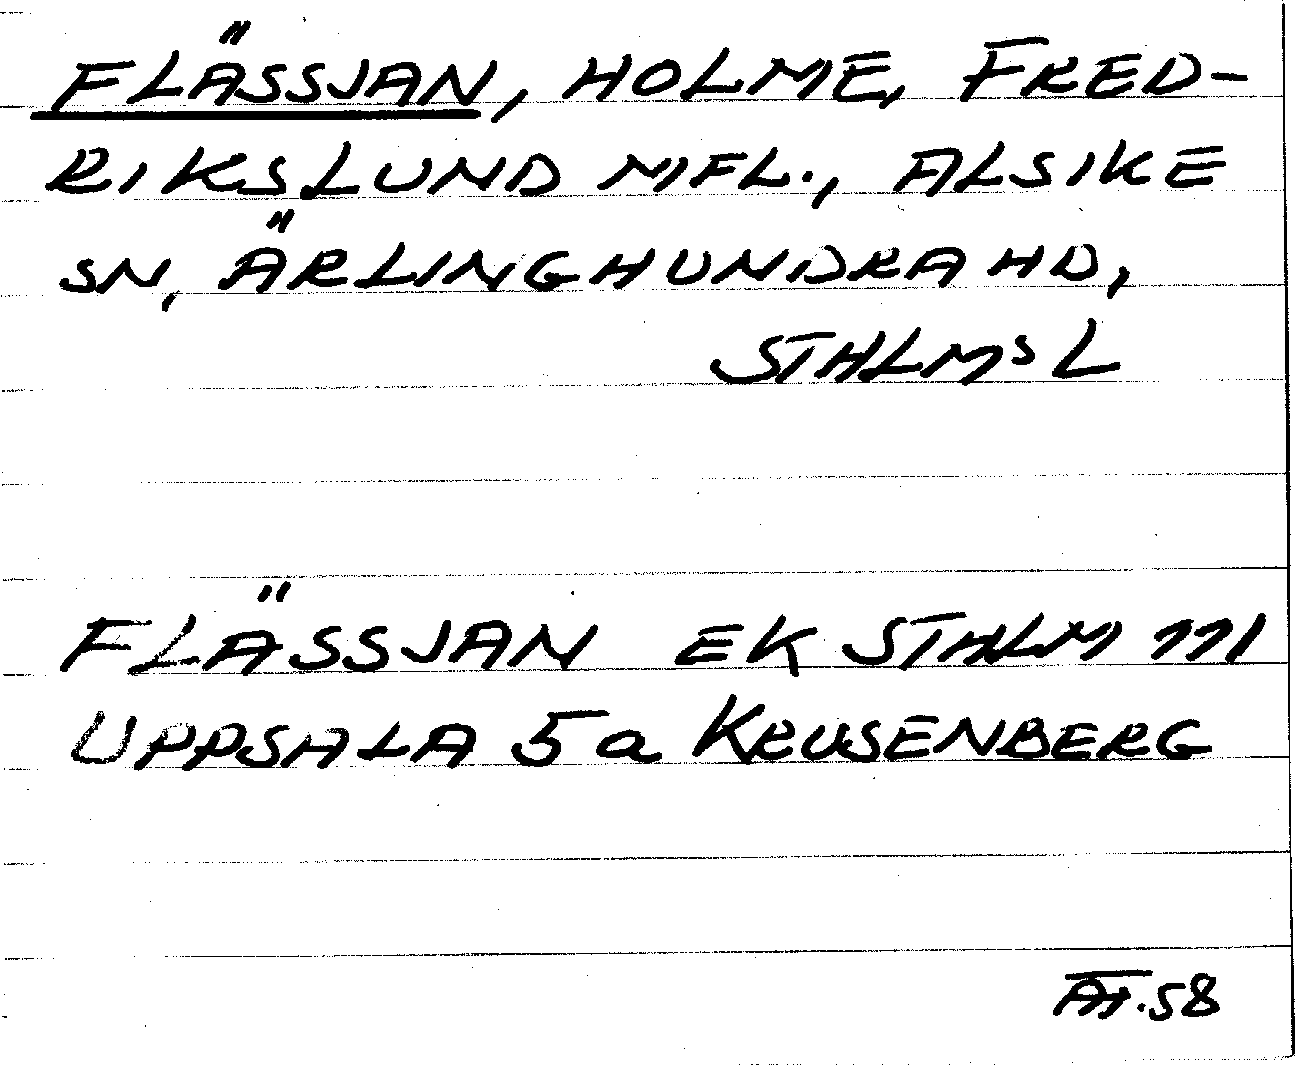 FLÄSSJAN, HOLME, FRED-
RIKSLUND MFL., ALSIKE
SN, ÄRLINGHUNDRA HD,
STHLMS L
FLÄSSJAN EK STHLM 111
UPPSALA 5a KRUSENBERG
.58